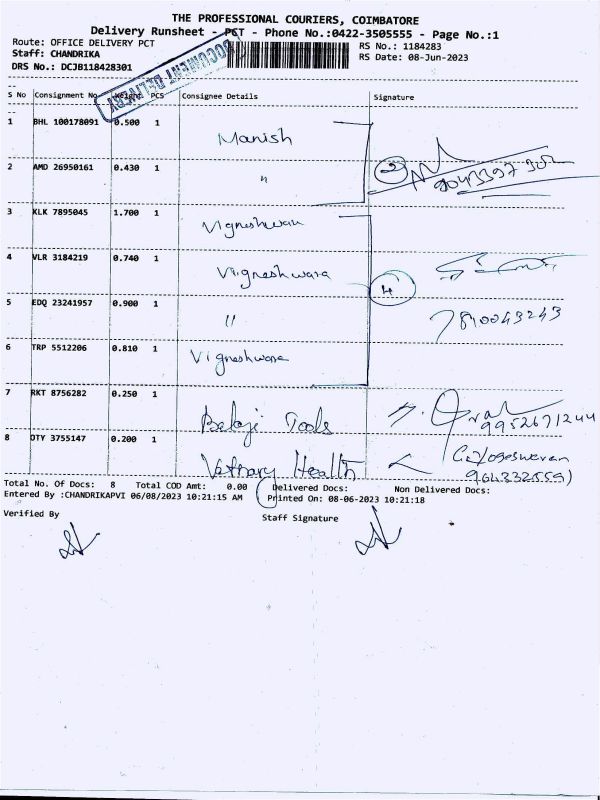 THE PROFESSIONAL COURIERS, COIMBATORE
Delivery Runsheet - PCT - Phone No.:0422-3505555 - Page No.:1
Route: OFFICE DELIVERY PCT
RS No.: 1184283
Staff: CHANDRIKA
RS Date: 08-Jun-2023
DRS No.: DCJB118428301
DOCUMENT DELIVERY
S No Consignment No Weight PCS Consignee Details Signature
1 BHL 100178091 0.500 1 Manish
2 AMD 26950161 0.430 1 " 2 9043397302
3 KLK 7895045 1.700 1 Vigneshwan
4 VLR 3184219 0.740 1 Vigneshwara
4
5 EDQ 23241957 0.900 1 " 7890043243
6 TRP 5512206 0.810 1 Vigneshwara
7 RKT 8756282 0.250 1 Balaji Tools 9952671244
8 OTY 3755147 0.200 1 Vetnary Health
Total No. Of Docs: 8 Total COD Amt: 0.00 Delivered Docs: Non Delivered Docs:
Entered By :CHANDRIKAPVI 06/08/2023 10:21:15 AM Printed On: 08-06-2023 10:21:18
Verified By Staff Signature